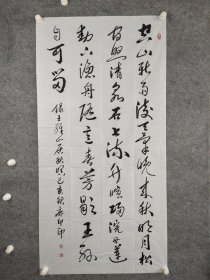 空山新雨後天氣晚來秋明月松
間照清泉石上流竹喧歸浣女蓮
動下漁舟隨意春芳歇王孫
自可留 錄王維山居秋暝己亥秋